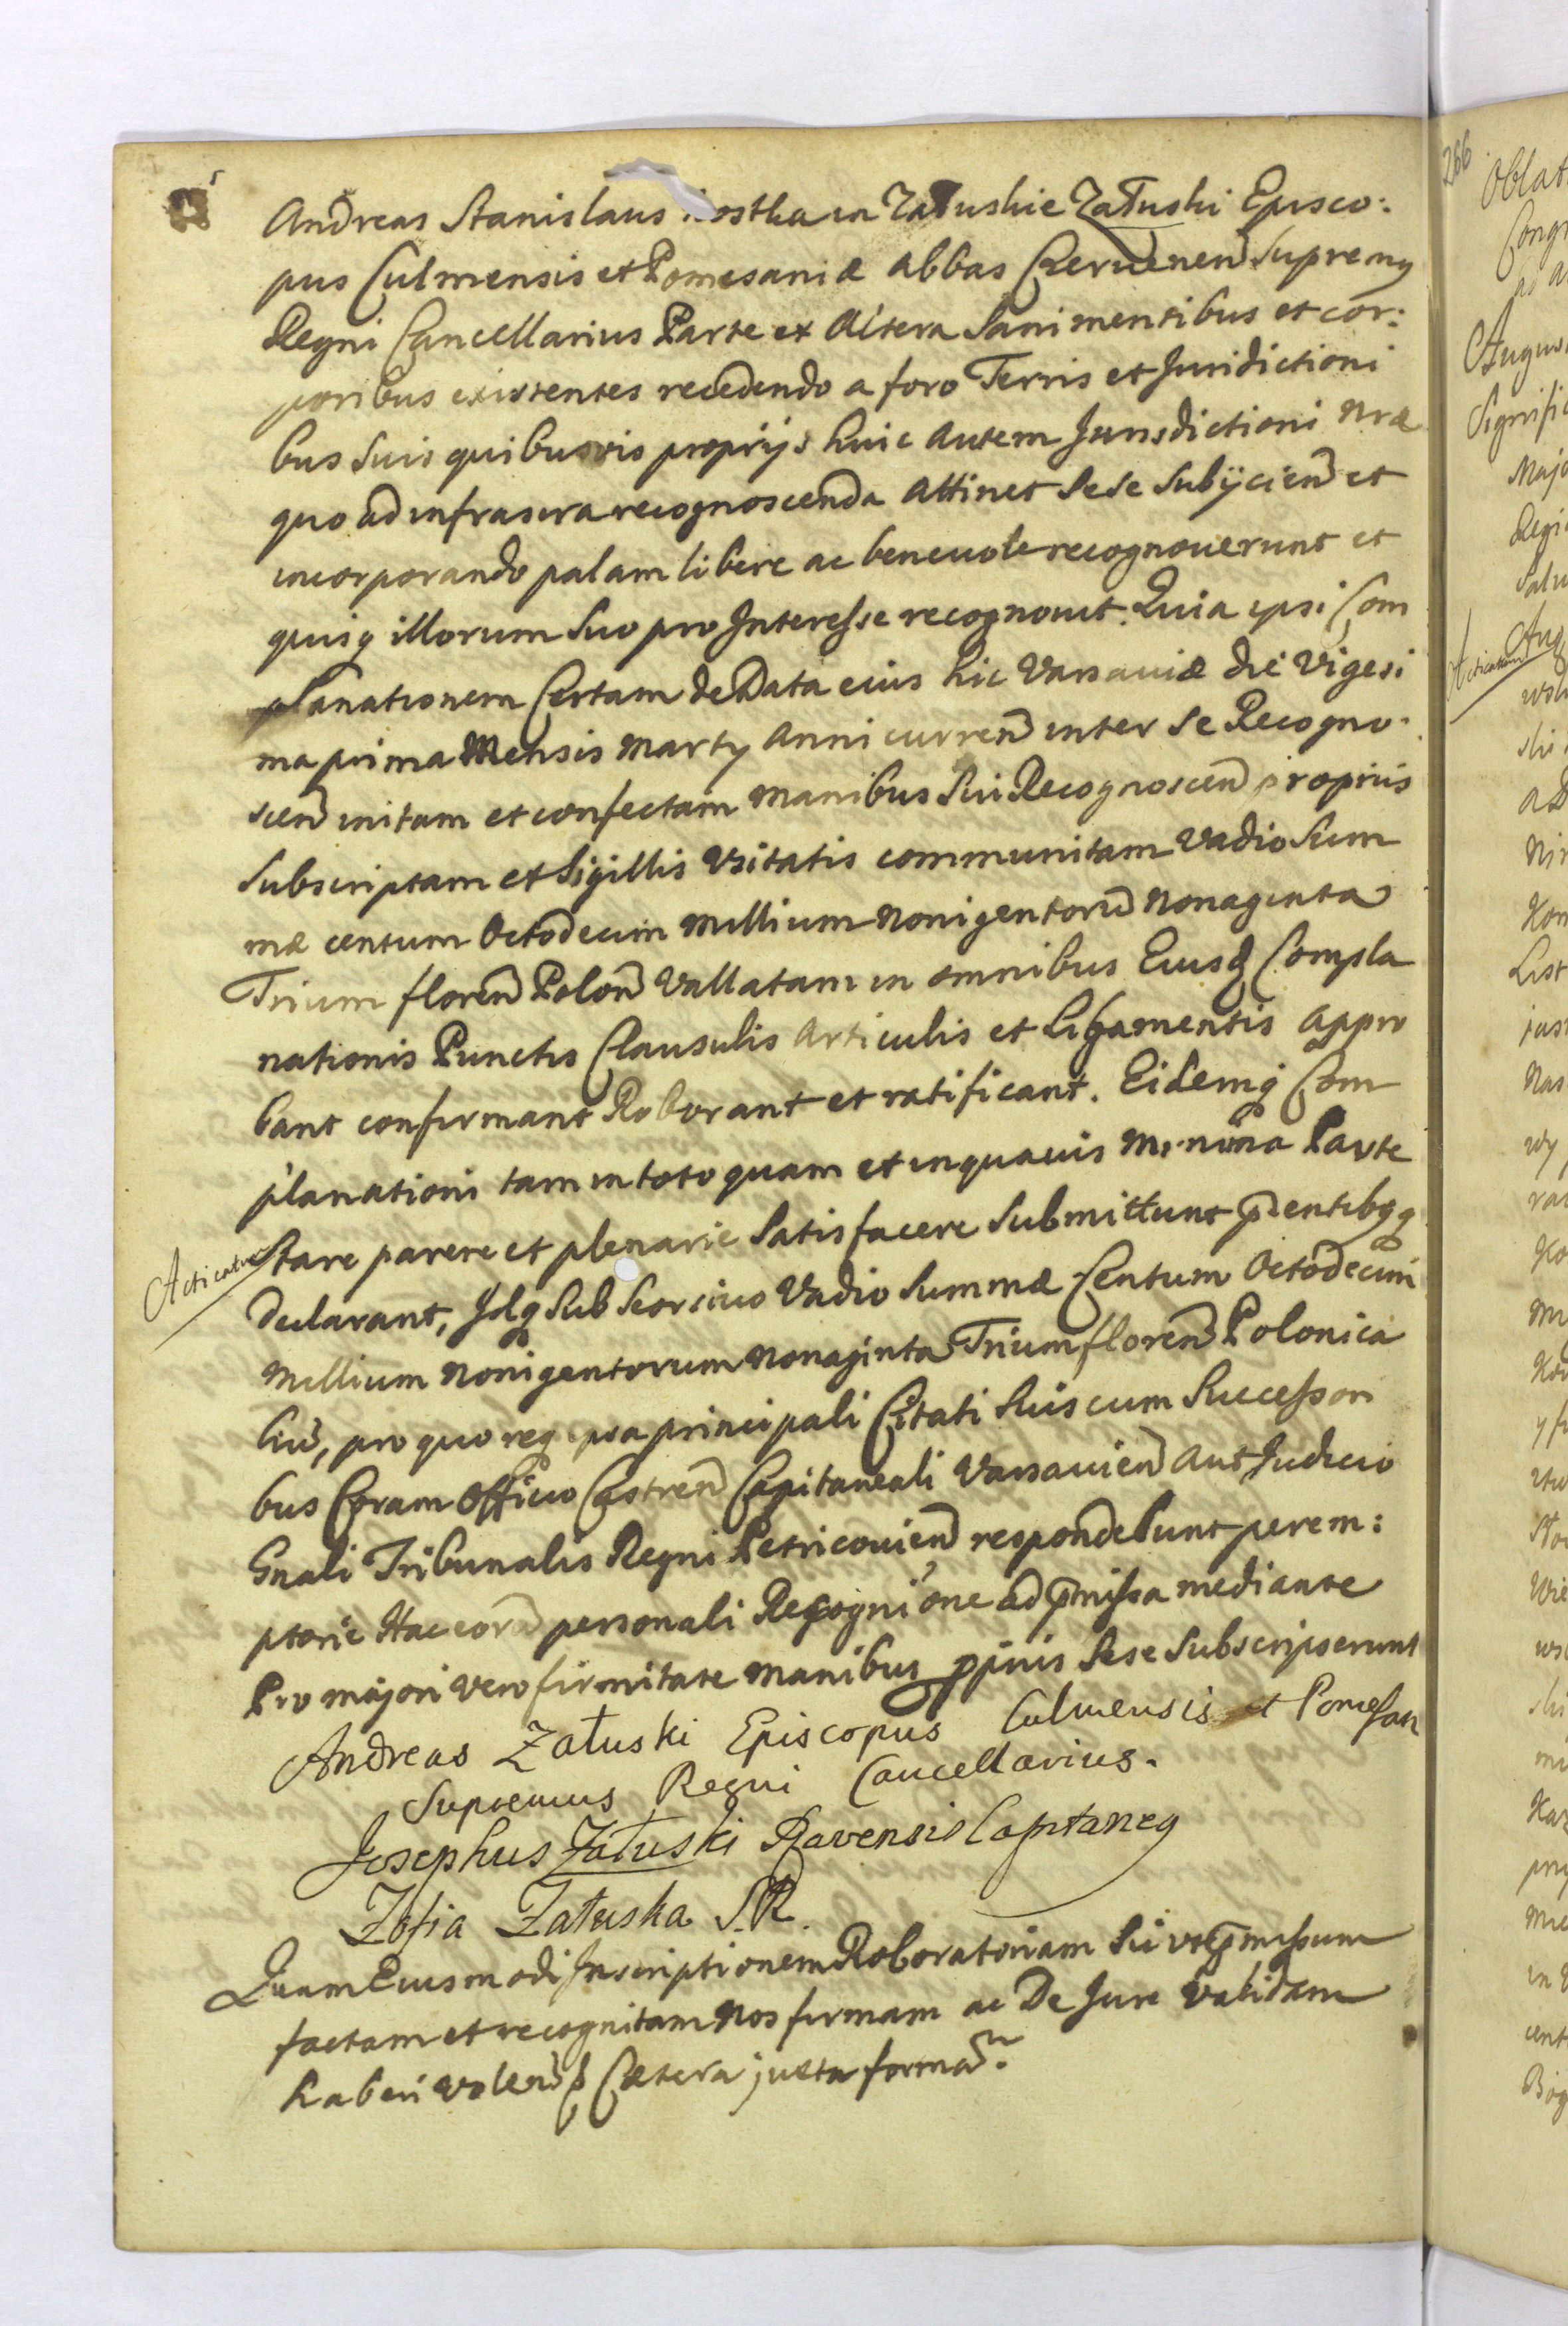 Andreas Stanislaus Kostka in Załuskie Załuski Episco:
pus Culmensis et Pomesaniæ Abbas Czervenen Supremq
Regni Cancellarius Parte ex Altera Sani mentibus et cor:
poribus existentes recedendo a foro Terris et Juridictioni
bus suis quibusvis proprijs huic Autem Jurisdictioni Nræ
quo ad infrascra recognoscenda Attinet sese subijcien et
incorporando palam libere ac benevole recognouerunt et
quisq illorum suo pro Interesse recognouit. Quia ipsi Com
planationem Certam de Data eius hic Varsauiæ die Vigesi
ma prima Mensis Martij Anni curren inter se Recogno:
scen initam et confectam Manibus sui Recognoscen proprijs
Subscriptam et Sigillis Vsitatis communitam Vadio Sum
mæ centum Octodecim Millium Nonigentoru Nonaginta
Trium floren Polon Vallatam in omnibus Eiusd Compla
nationis Punctis Clausulis Articulis et Ligamentis Appro
bant confirmant Roborant et ratificant. Eidemq Com
planationi tam in toto quam et in quauis Minima Parte
Acticatu
Stare parere et plenarie Satisfacere Submittunt pñtibqq
Declarant, Idq Sub Seorsiuo Vadio Summæ Centum Octodecim
Millium Nonigentorum Nonaginta Trium floren Polonica
liu, pro quo req ipsa principali Citati Suis cum Successori
bus Coram Officio Castren Capitaneali Varsauien Aut Judicio
Gnali Tribunalis Regni Petricouien respondebunt perem:
ptorie Hac cora personali Recognione ad pmissa mediante
Pro majori vero firmitate Manibus pprijs Sese Subscripserunt
Andreas Załuski Episcopus Culmensis et Pomesan
Supremus Regni Cancellarius.
Josephus Załuski Ravensis Capitaneq
Zofia Załuska S.R.
Quam Eiusmodi Inscriptionem Roboratoriam Sic vt pmissum
factam et recognitam Nos firmam ac De Jure Validam
haberi volen & Cætera juxta forma.
266
Oblat
Congr
Augus
Signifi
Majo
Regi
Salu
Acticatum
Aug